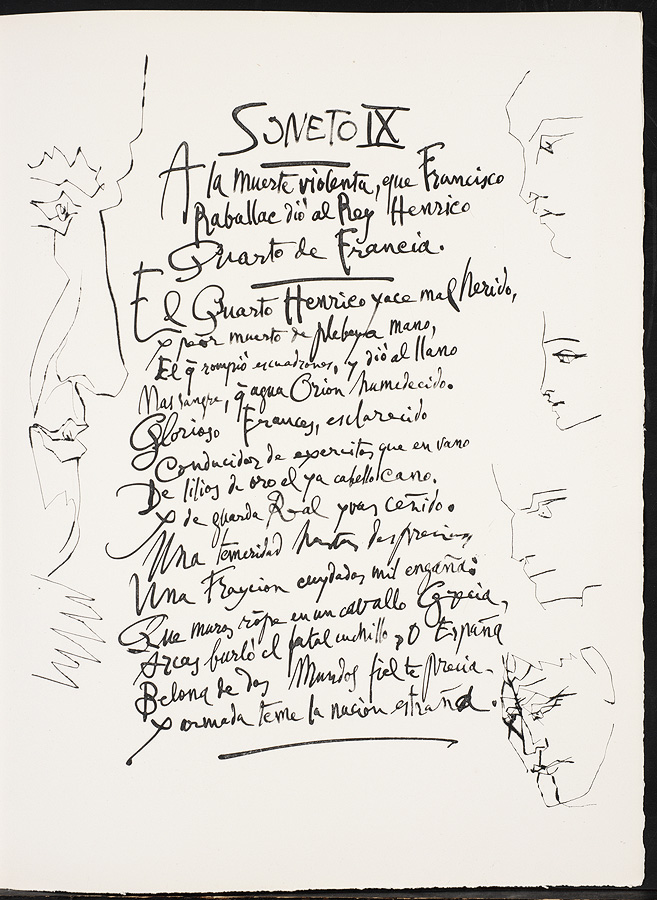 SONETO IX
A la muerte violenta, que Francisco
Raballac dió al Rey Henrico
Quarto de Francia.
El Quarto Henrico yace mal herido,
y peor muerto de plebeya mano,
El q̄ rompió escuadrones, y dió al llano
Mas sangre, q̄ agua Orion humedecido.
Glorioso Frances, esclarecido
Conducidor de exercitos que en vano
De lilios de oro el ya cabello cano.
Y de guarda Real yvas ceñido.
Una temeridad hastas desprecia,
Una Traycion cuydados mil engaña:
Que muros rope en un caballo Grecia,
Arcas burló el fatal cuchillo, O España
Belona de dos Mundos fiel te precia.
Y armada teme la nación estraña.